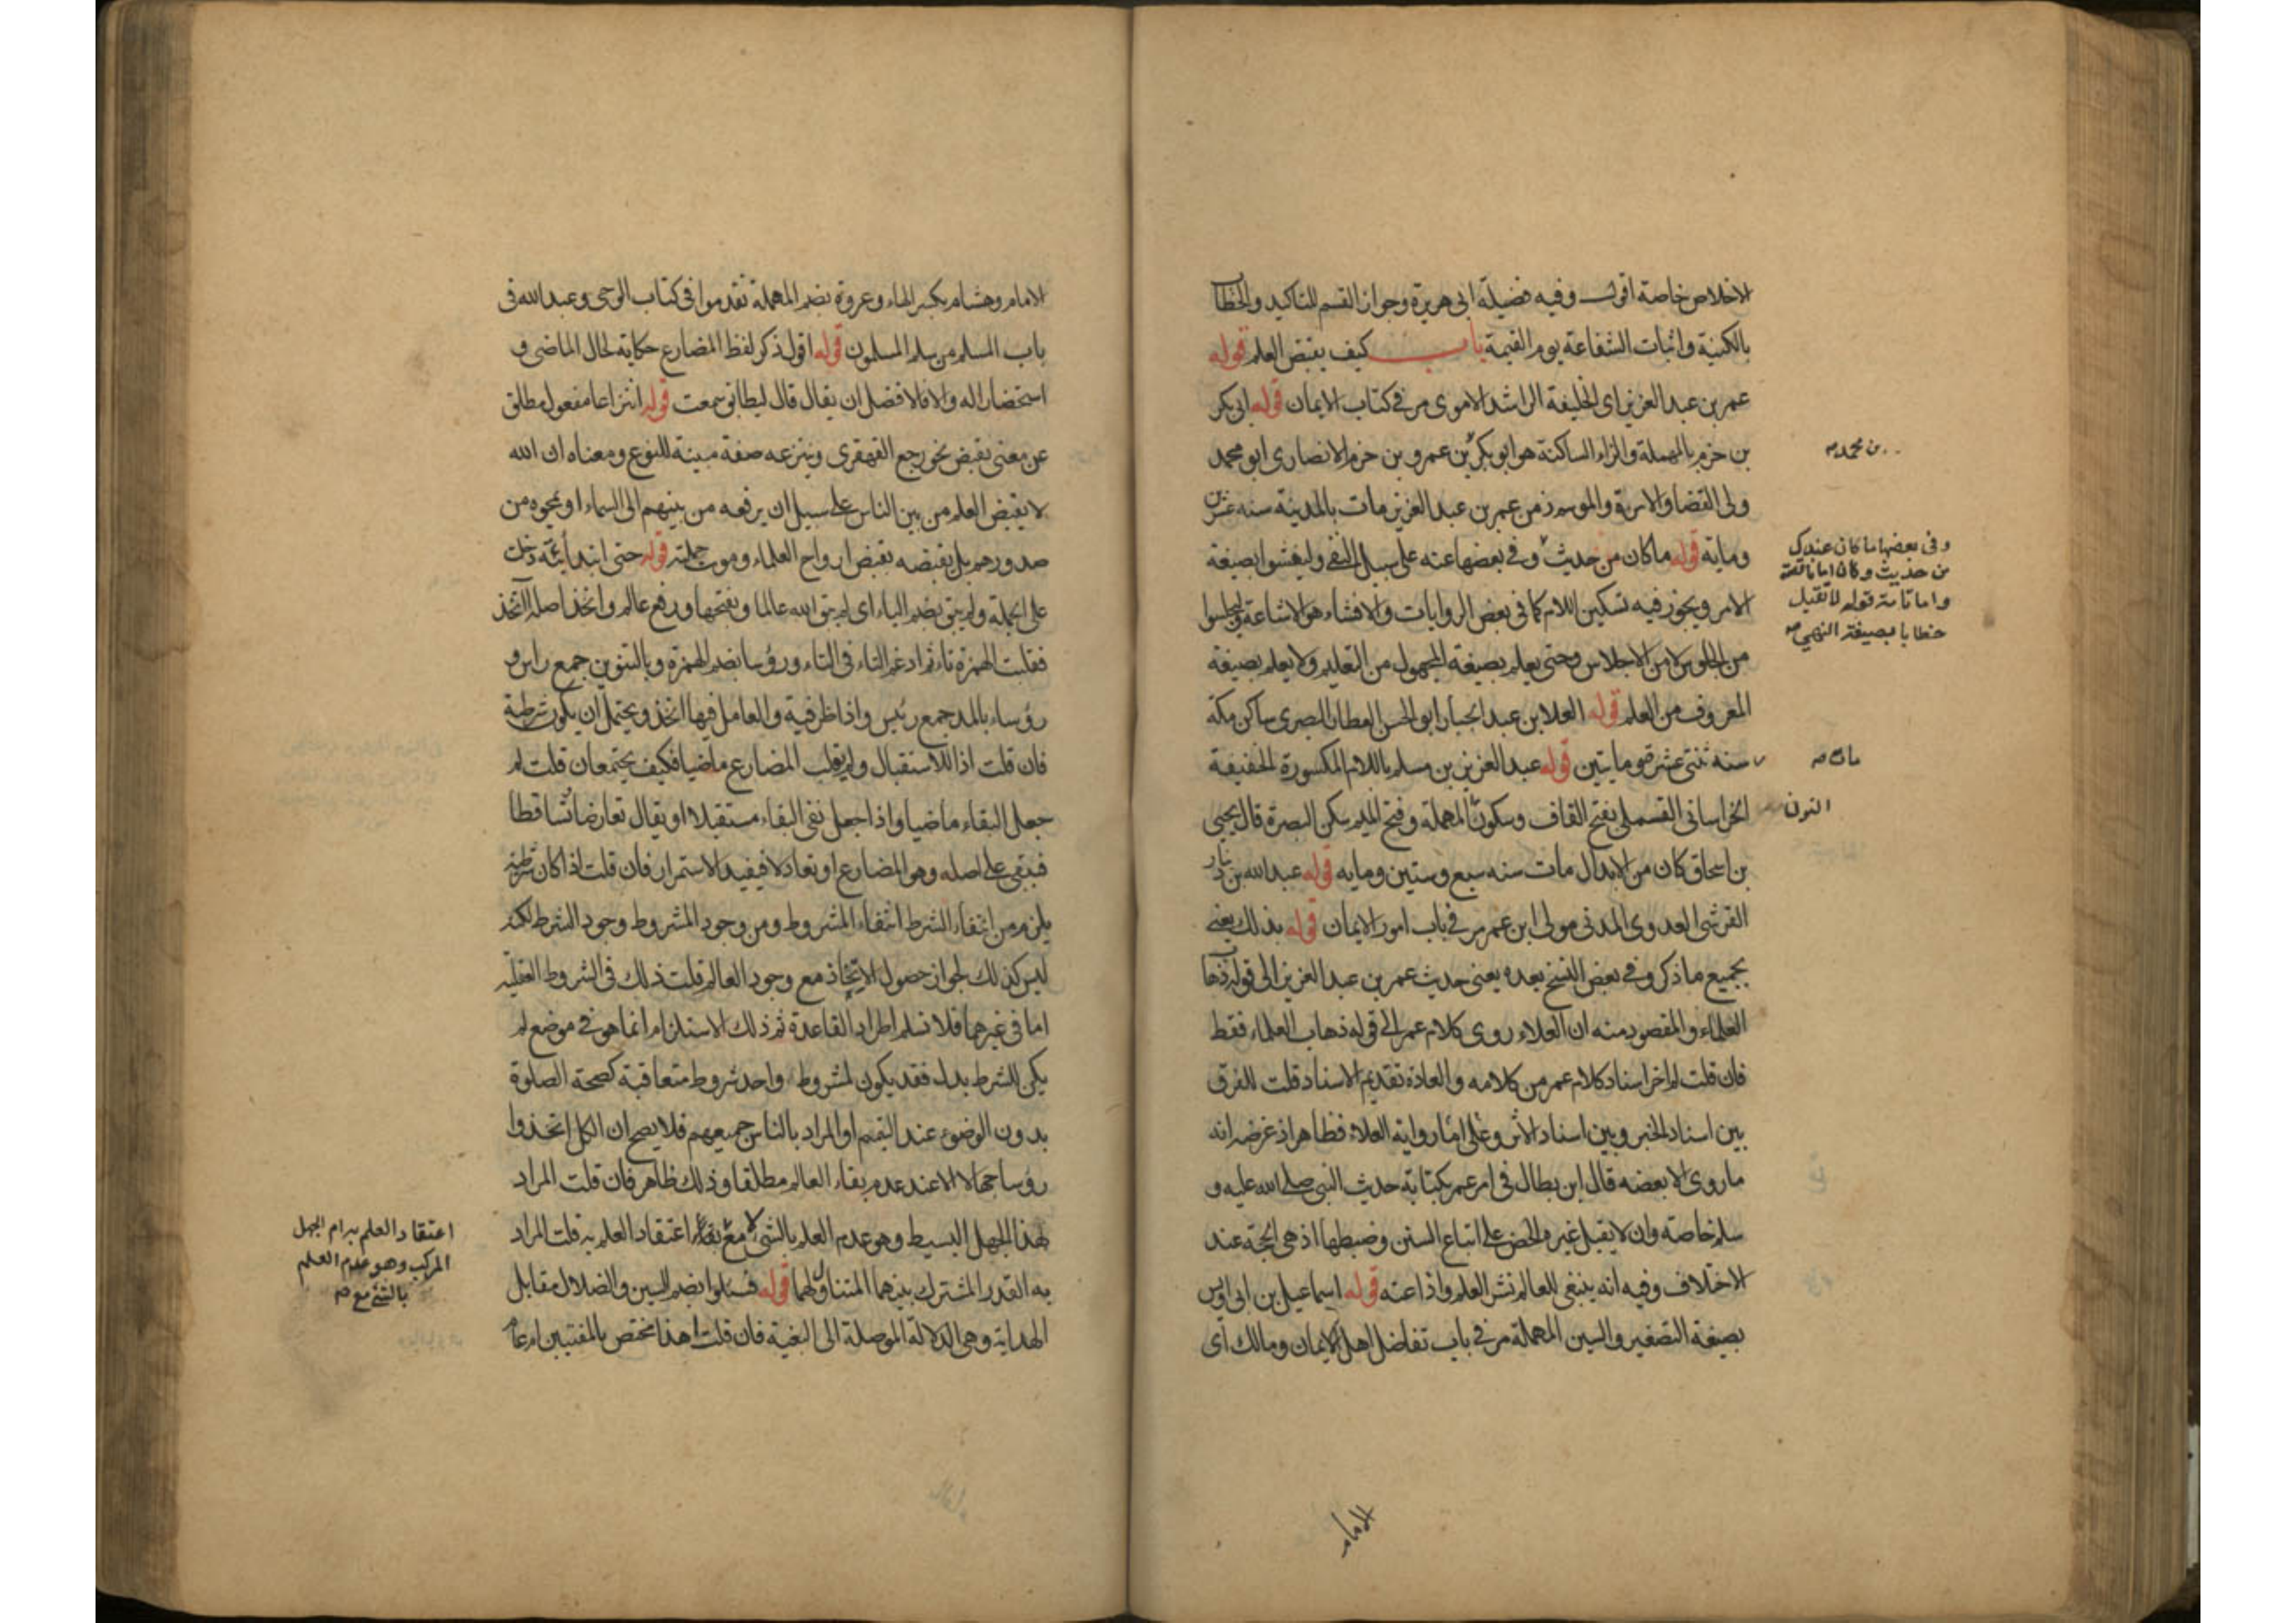 الاخلاص خاصة اقول وفيه فضيلة ابى هريرة وجواز القسم للتاكيد والخطاب
بالكنية واثبات الشفاعة يوم القيمة باب كيف يقبض العلم قوله
عمر بن عبد العزيز اى الخليفة الراشد الاموى مر فى كتاب الايمان قوله ابى بكر
بن حزم بالمهملة والزاء الساكنة هو ابو بكر بن عمرو بن حزم الانصارى ابو محمد
بن محمد صح
ولى القضا والامرة والموسم زمن عمر بن عبد العزيز مات بالمدينة سنه عشرين
وماية قوله ماكان من حديث وفى بعضها عنه على سبيل النفى وليفشوا بصيغة
وفى بعضها ما كان عندك
من حديث وكان اما ناقصة
واما تامة قوله لا تقبل
خطابا بصيغة النهى صح
الامر ويجوز فيه تسكين اللام كما فى بعض الروايات والافشاء هو الاشاعة وليجلسوا
من الجلوس لا من الاجلاس وحتى يعلم بصيغة المجهول من التعليم ولا يعلم بصيغة
المعروف من العلم قوله العلا بن عبد الجبار ابو الحسن العطار البصرى ساكن مكة
سنه ثنتى عشرة ومايتين قوله عبد العزيز بن مسلم باللام المكسورة الخفيفة
مات صح
الخراسانى القسملى بفتح القاف وسكون المهملة وفتح الميم سكن البصرة قال يحيى
النون
بن اسحاق كان من الابدال مات سنه سبع وستين ومايه قوله عبد الله بن دينار
القرشى العدوى المدنى مولى ابن عمر مر فى باب امور الايمان قوله بذلك يعنى
بجميع ما ذكر وفى بعض النسخ بعده يعنى حديث عمر بن عبد العزيز الى قوله ذهاب
العلماء والمقصود منه ان العلاء روى كلام عمر الى قوله ذهاب العلماء فقط
فان قلت لم اخر اسناد كلام عمر من كلامه والعادة تقديم الاسناد قلت للفرق
بين اسناد الخبر وبين اسناد الاثر وعلى اما رواية العلاء فظاهر اذ غرضه انه
ما روى الا بعضه قال ابن بطال فى امر عمر بكتابة حديث النبى صلى الله عليه و
سلم خاصة وان لا يقبل غيره الحض على اتباع السنن وضبطها اذ هى الحجة عند
الاختلاف وفيه انه ينبغى للعالم نشر العلم واذاعته قوله اسماعيل بن ابى اويس
بصيغة التصغير والسين المهملة مر فى باب تفاضل اهل الايمان ومالك اى
الامام
الامام وهشام بكسر الهاء وعروة بضم المهملة تقدموا فى كتاب الوحى وعبد الله فى
باب المسلم من سلم المسلمون قوله اقول ذكر لفظ المضارع حكاية لحال الماضى و
استحضارا له والا فالافضل ان يقال قال ليطابق سمعت قوله انتزاعا مفعول مطلق
عن معنى يقبض نحو رجع القهقرى وينتزعه صفة مبينة للنوع ومعناه ان الله
لا يقبض العلم من بين الناس على سبيل ان يرفعه من بينهم الى السماء او يمحوه من
صدورهم بل يقبضه بقبض ارواح العلماء وموت حملته قوله حتى ابتدائية دخلت
على الجملة ولم يبق بضم الياء اى لم يبق الله عالما وبفتحها ورفع عالم واتخذ اصله ائتخذ
فقلبت الهمزة تاء ثم ادغم التاء فى التاء ورؤسا بضم الهمزة وبالتنوين جمع راس و
رؤساء بالمد جمع رئيس واذا ظرفية والعامل فيها اتخذ ويحتمل ان يكون شرطية
فان قلت اذا للاستقبال ولم يقلب المضارع ماضيا فكيف يجتمعان قلت لم
جعل البقاء ماضيا واذا جعل نفى البقاء مستقبلا او يقال تعارضا تساقطا
فبقى على اصله وهو المضارع او تعادلا فيفيد الاستمرار فان قلت اذا كان شرطية
يلزم من انتفاء الشرط انتفاء المشروط ومن وجود المشروط وجود الشرط لكنه
ليس كذلك لجواز حصول الاتخاذ مع وجود العالم قلت ذلك فى الشروط العقلية
اما فى غيرهما فلا نسلم اطراد القاعدة ثم ذلك الاستلزام انما هو فى موضع لم
يكن للشرط بدل فقد يكون لمشروط واحد شروط متعاقبة كصحة الصلوة
بدون الوضوء عند التيمم او المراد بالناس جميعهم فلا يصح ان الكل اتخذوا
رؤسا جهالا الا عند عدم بقاء العالم مطلقا وذلك ظاهر فان قلت المراد
بهذا الجهل البسيط وهو عدم العلم بالشئ لا مع اعتقاد العلم به قلت المراد
اعتقاد العلم به ام الجهل
المركب وهو عدم العلم
بالشئ مع صح
به القدر المشترك بينهما المتناول لهما قوله فسئلوا بضم السين والضلال مقابل
الهداية وهى الدلالة الموصلة الى البغية فان قلت اهذا مختص بالمفتين ام عام